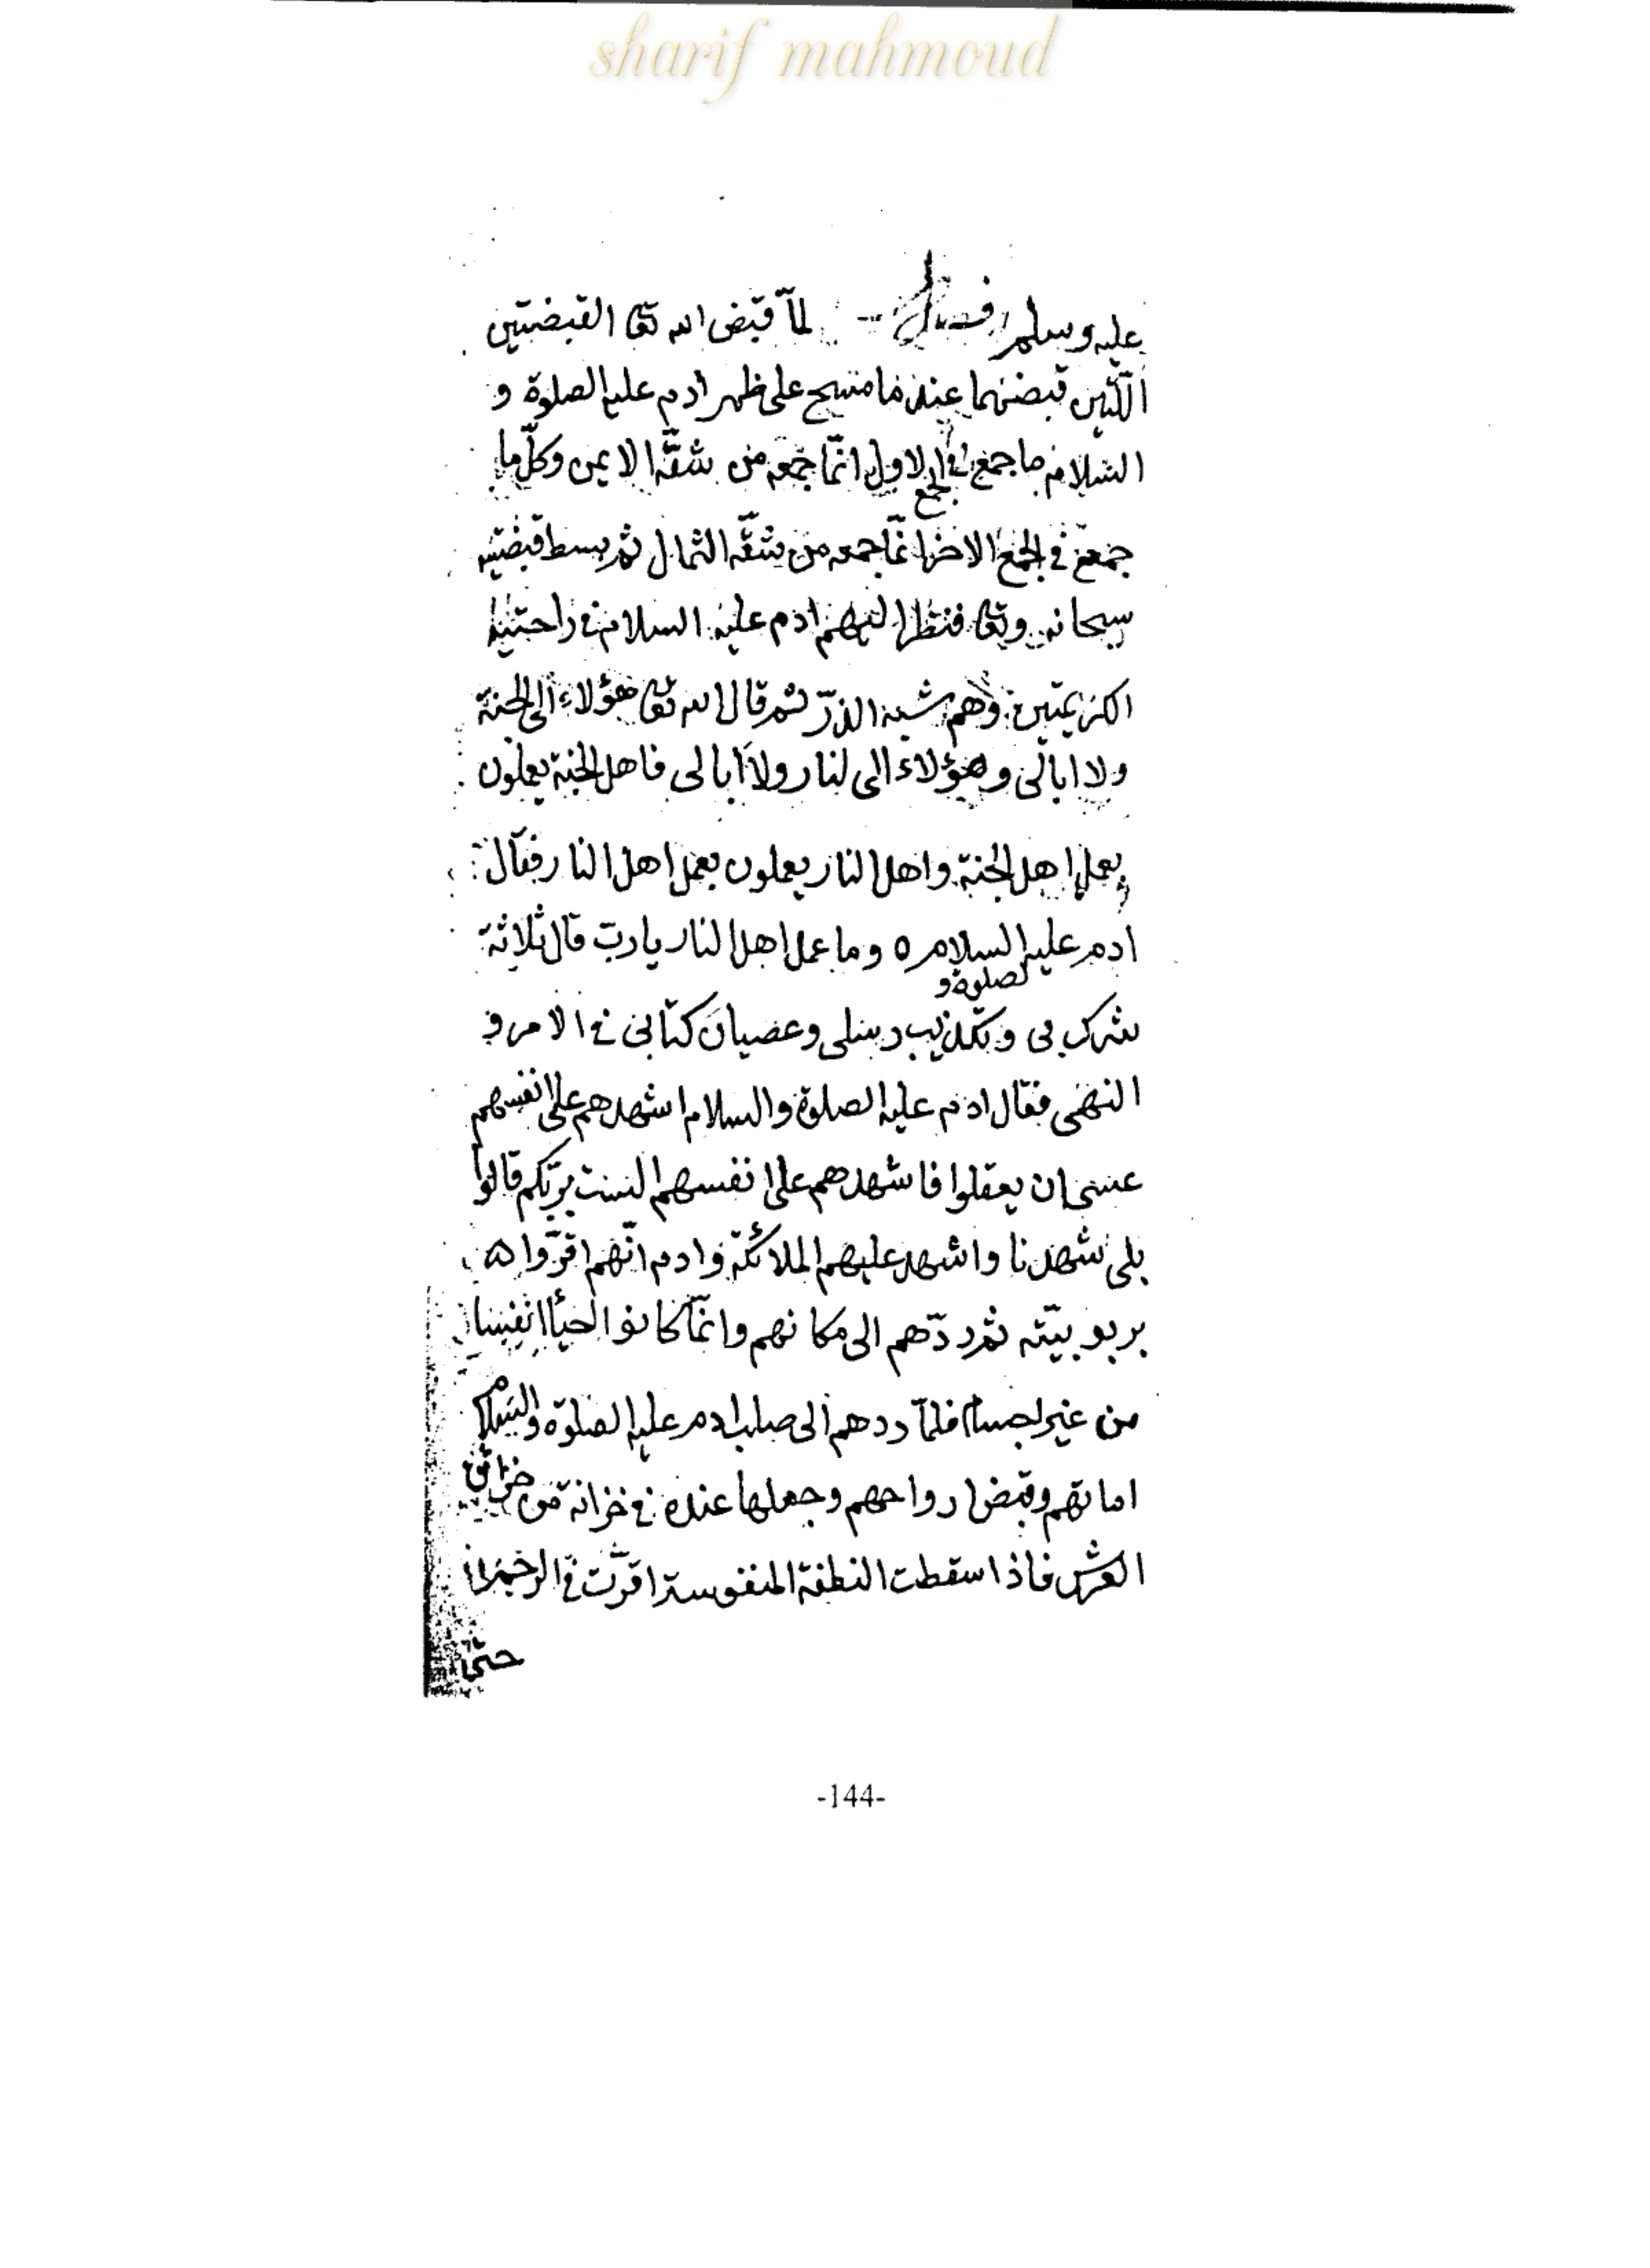 sharif mahmoud
عليه وسلم فصل لمّا قبض الله تعا القبضتين
اللّتين قبضهما عندما مسح على ظهر ادم عليه الصلوة و
السّلام ما جمع في الجمع الاول انّما جمعه من شقّه الايمن وكلّ ما
جمعه في الجمع الاخر انّما جمعه من شقّه الشمال ثم بسط قبضتيه
سبحانه وتعا فنظر اليهم ادم عليه السلام في راحتيه
الكريمتين وهم شبه الذرّ ثم قال الله تعا هؤلاء الى الجنة
ولا ابالى وهؤلاء الى لنار ولا أبالى فاهل الجنة يعملون
بعمل اهل الجنة واهل النار يعملون بعمل اهل النار فقال
ادم عليه السلام ه وما عمل اهل النار يا ربّ قال ثلاثة
لصلوة و
شرك بى وتكذيب رسلى وعصيان كتابى في الامر و
النهى فقال ادم عليه الصلوة والسلام اشهدهم على انفسهم
عسى ان يعقلوا فاشهدهم على انفسهم الست بربّكم قالوا
بلى شهدنا واشهد عليهم الملائكة وادم انّهم اقرّوا
بربوبيّته ثم ردّهم الى مكانهم وانّما كانوا احياً انفسا
من غير اجسام فلمّا ردهم الى صلب ادم عليه الصلوة والسّلام
اماتهم وقبض ارواحهم وجعلها عنده في خزانة من خزائن
العرش فاذا سقطت النطفة المنفوسة اقرّت في الرحم
حتى
-144-